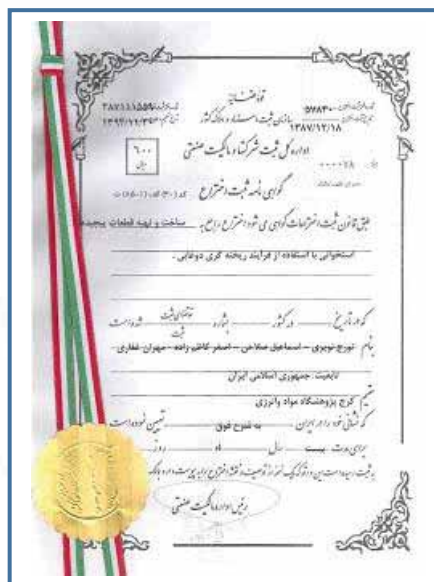 قوه قضائیه
سازمان ثبت اسناد و املاک کشور
۵۷۸۳۰
۱۳۸۷/۱۲/۱۸
اداره کل ثبت شرکتها و مالکیت صنعتی
۶۰۰
ریال
گواهی نامه ثبت اختراع
طبق قانون ثبت اختراعات گواهی می شود اختراع راجع به ساخت و تهیه قطعات پیچیده
استخوانی با استفاده از فرآیند ریخته گری دوغابی .
که در تاریخ در کشور بشماره تقاضای ثبت شده است
ثبت
بنام تورج تبریزی - اسماعیل صلاحی - اصغر کاظم زاده - مهران غفاری
تابعیت: جمهوری اسلامی ایران
مقیم کرج پژوهشگاه مواد وانرژی
که نشانی خود را در ایران به شرح فوق تعیین نموده است
برای مدت بیست سال ماه روز
رئیس اداره مالکیت صنعتی